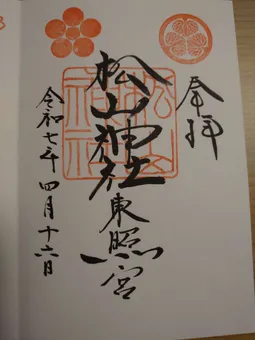 奉拝
松山神社東照宮
令和七年四月十六日
松山
神社